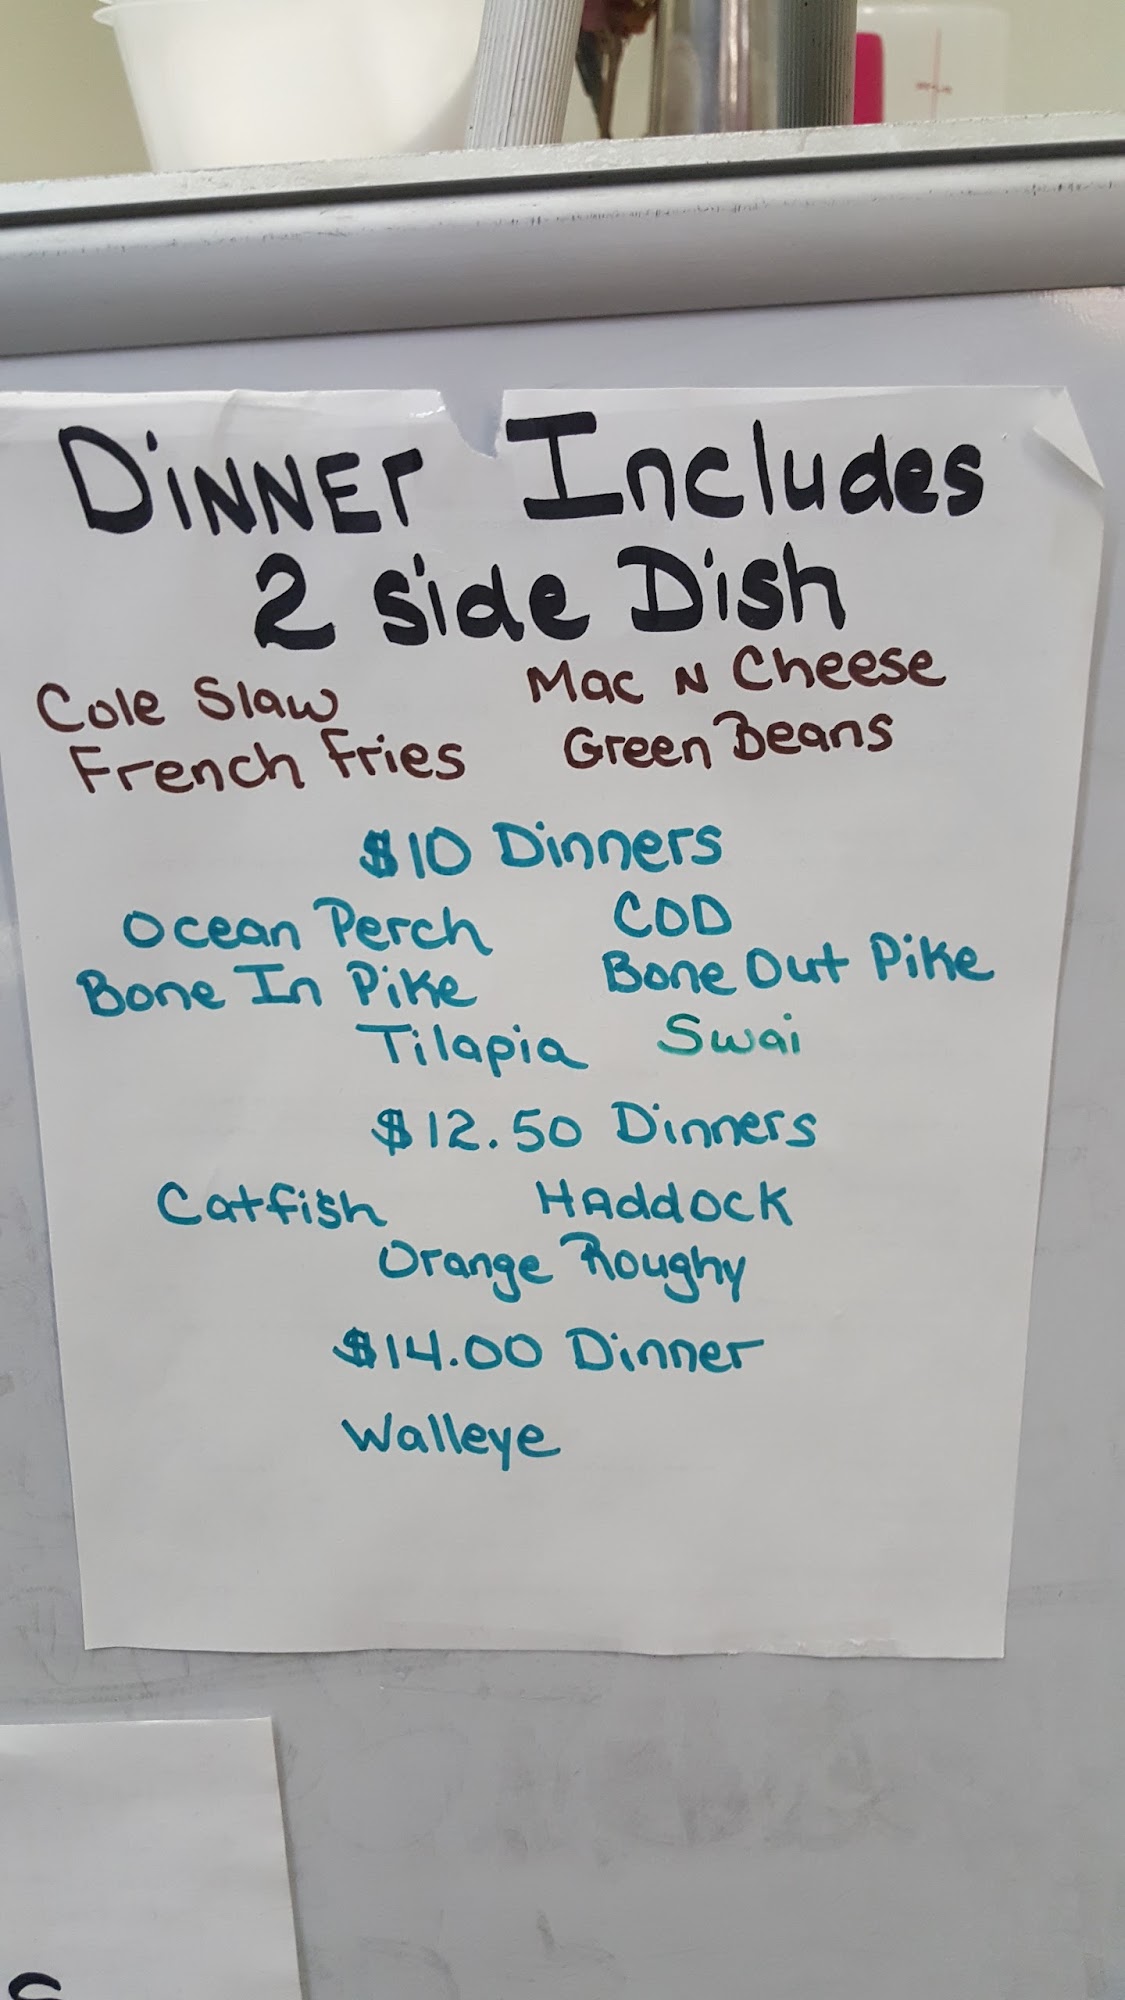 DiNNEr Includes
2 side Dish
Cole Slaw Mac N Cheese
French Fries Green Beans
$10 Dinners
Ocean Perch COD
Bone In Pike Bone Out Pike
Tilapia Swai
$12.50 Dinners
Catfish HAddOCK
Orange Roughy
$14.00 Dinner
Walleye